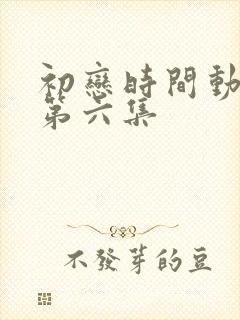 初戀時間動
第六集
不發芽的豆